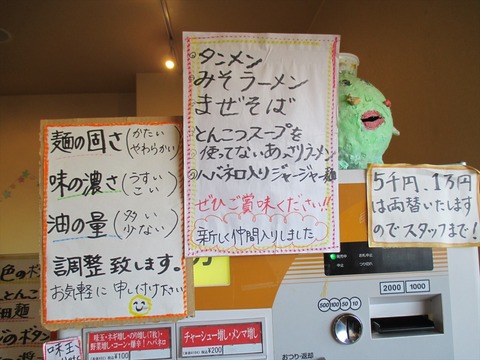 タンメン
みそラーメン
まぜそば
とんこつスープを
使ってないあっさりラーメン
ハバネロ入りジャージャー麺
ぜひご賞味ください!!
新しく仲間入りしました
麺の固さ(かたい
やわらかい)
味の濃さ(うすい
こい)
油の量(多い
少ない)
調整致します!
お気軽に申し付け下さい
5千円、1万円
は両替いたします
のでスタッフまで!
2000 1000
500 100 50 10
おつり・返却
味玉・ネギ増し・のり増し(7枚)・
野菜増し・コーン・爆辛!ハバネロ
税込¥100
チャーシュー増し・メンマ増し
税込¥200
とんこつ
細麺
味玉